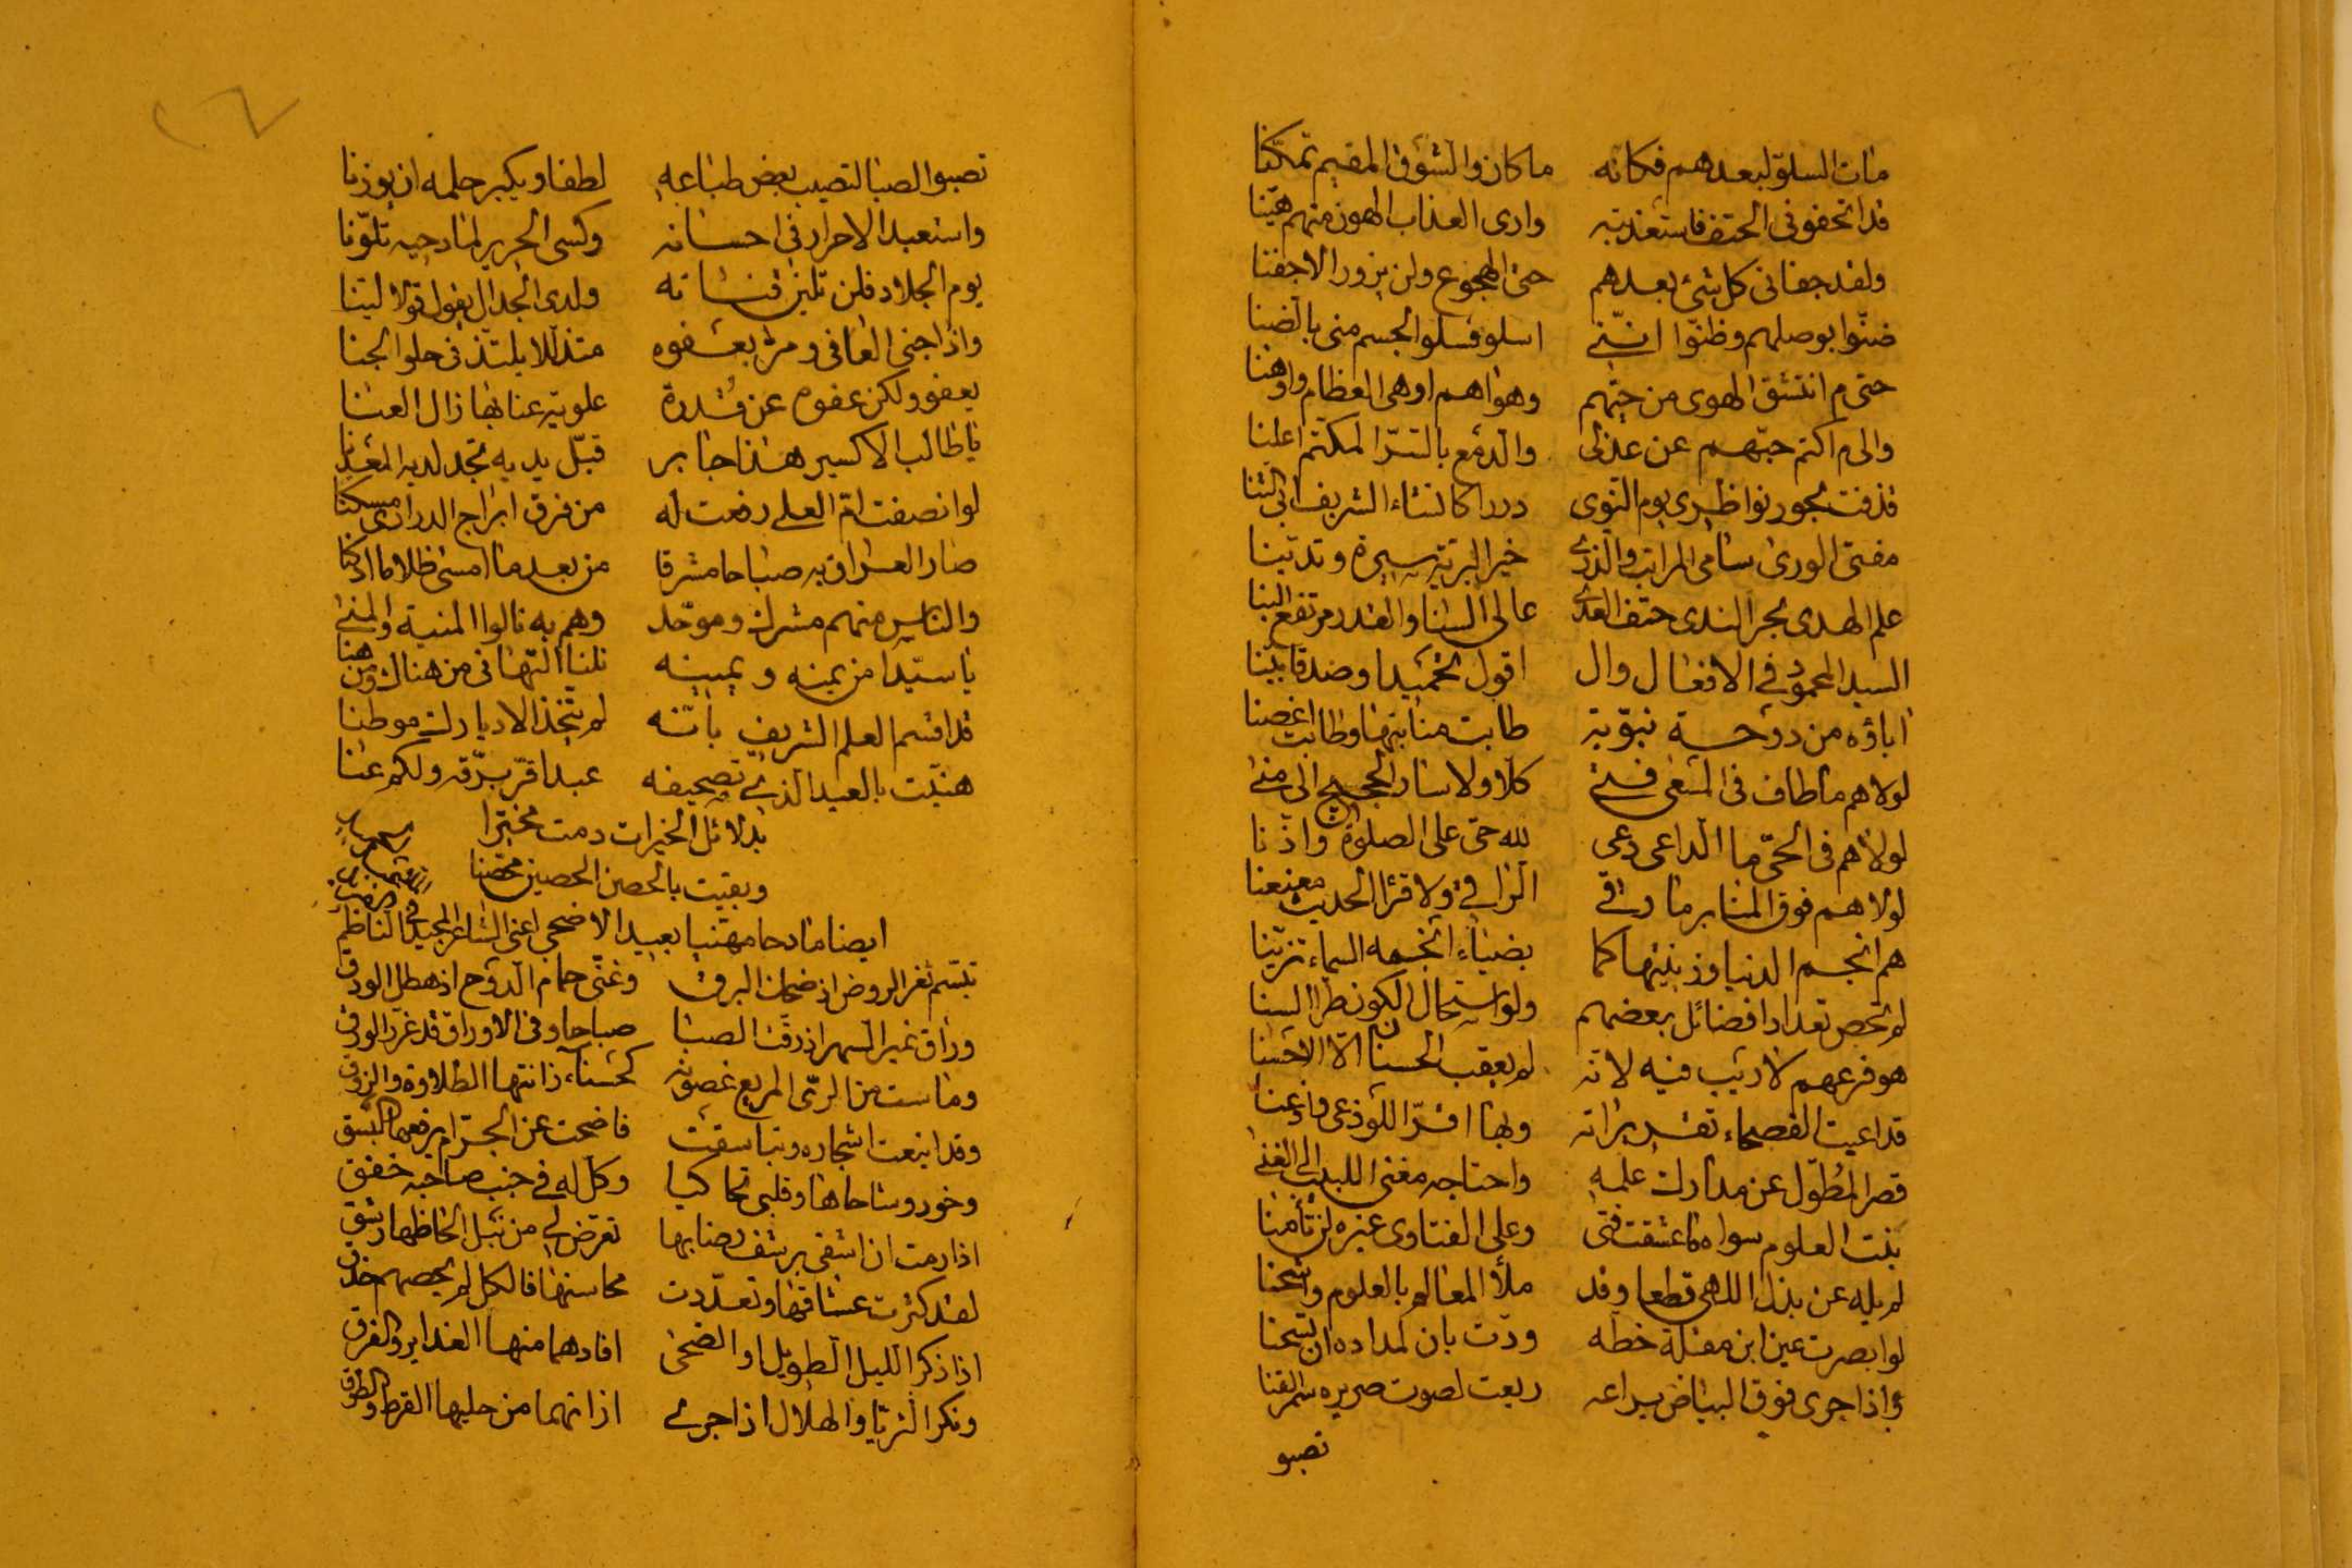 مات السلوّ لبعدهم فكانه ما كان والشوق المقيم تمكّنا
قد اتحفوني الحتف فاستعذبته وارى العذاب الهون منهم هيّنا
ولقد جفاني كل شئ بعدهم حتى الهجوع ولن يزور الاجفنا
ضنّوا بوصلهم وظنّوا انني اسلو فسلو الجسم مني بالضنا
حتى م انتشق الهوى من حبّهم وهواهم اوهى العظام واوهنا
والى م اكتم حبّهم عن عذلي والدمع بالسرّ المكتم اعلنا
قذفت بحور نواظرى يوم النوى دررا كانشاء الشريف ابي الثنا
مفتى الورى سامي المراتب والذرى خير البرية سيرة وتدينا
علم الهدى بحر الندى حتف العدى عالى السنا والقدر مرتفع البنا
السيد المحمود في الافعال وال اقوال تحميدا وصدقا بيّنا
اباؤه من دوحة نبوّية طابت منابتها وطابت اغصنا
لولاهم ما طاف في المسعى فتى كلا ولا سار الحجيج الى منى
لولاهم في الحيّ ما الداعى دعى لله حى على الصلوة واذّنا
لولاهم فوق المنابر ما رقى الراقي ولا قرأ الحديث معنعنا
هم انجم الدنيا وزينتها كما بضياء انجمه السماء تزيّنا
لم تحص تعداد افضائل بعضهم ولو استحال الكون طرا السنا
هو فرعهم لا ريب فيه لانه لم يعقب الحسنان الا الاحسنا
قد اعيت الفصحاء تقديراته وبها اقرّ اللوذعى واذعنا
قصر المطوّل عن مدارك علمه واحتاجه مغنى اللبيب الى الغنى
بنت العلوم سواه ما عشقت فتى وعلى الفتاوى غيره لن تأمنا
لم يله عن بذل اللهى قطعا وقد ملأ المعالم بالعلوم واشحنا
لو ابصرت عين ابن مقلة خطه ودّت بان لمداده ان تسحنا
واذا جرى فوق البياض يراعه ريعت لصوت صريره سمر القنا
تصبو
تصبوا الصبا لتصيب بعض طباعه لطفا ويكبر حلمه ان يوزنا
واستعبد الاحرار في احسانه وكسى الحرير لمادحيه تلوّنا
يوم الجلاد فلن تلين قناته ولدى الجدال يقول قولا لينا
واذا جنى العافي ومرّ بعفوه متذللا يلتذ في حلو الجنا
يعفو ولكن عفوه عن قدرة علوية عنا بها زال العنا
يا طالب الاكسير هذا جابر قبّل يديه تجد لديه المعدنا
لو انصفت ام العلى رفعت له من فرق ابراج الدرارى مسكنا
صار العراق به صباحا مشرقا من بعد ما امسى ظلاما ادكنا
والناس منهم مشرك وموحّد وهم به نالوا المنية والمنى
يا سيدا من يمنه ويمينه نلنا التهاني من هناك ومن هنا
قد اقسم العلم الشريف بانه لم يتخذ الا ديارك موطنا
هنيت بالعيد الذي تصحيفه عبد اقرّ برّقه ولكم عنا
بدلائل الخيرات دمت مخيرا
وبقيت بالحصن الحصين محصّنا
ايضا مادحا مهنيا بعيد الاضحى اعنى الشاعر المجيد الناظم
تبسّم ثغر الروض اذ ضحك البرق وغنّى حمام الدوح اذ هطل الودق
وراق غير النهر اذ رقت الصبا صباحا وفي الاوراق قد غرّد الورق
وماست من الريّ المريع غصونه كحسناء زانتها الطلاوة والروق
وقد اينعت اشجاره وتباسقت فاضحت عن الجرّام يرفعها البسق
وخود وشاحاها وقلبي تحاكيا وكل له في جنب صاحبه خفق
اذا رمت ان اشفى برشف رضابها تعرّض لي من نبل الحاظها رشق
لقد كثرت عشاقها وتعدّدت محاسنها فالكل لم يحصهم حذق
اذا ذكر الليل الطويل او الضحى افادهما منها الغدائر والفرق
وتكر الثريّا والهلال اذا جرى اذا نهما من حليها القرط والطوق